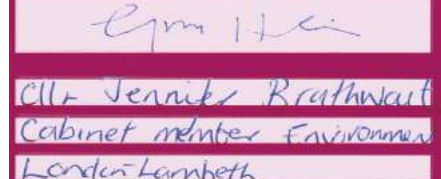 Cllr Jennifer Brathwait
Cabinet member Environmen
London-Lambeth